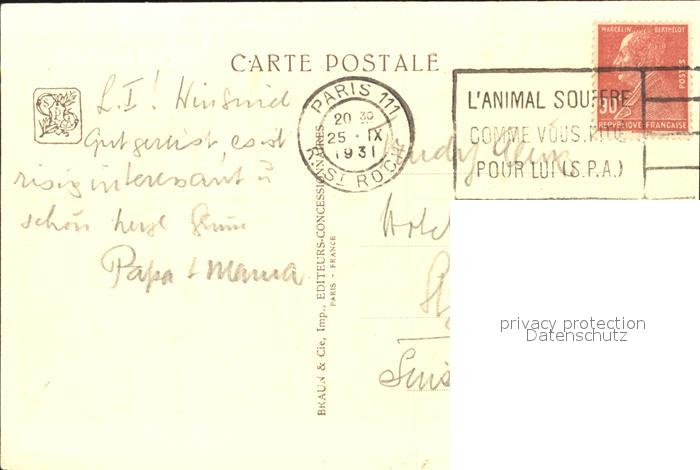 CARTE POSTALE
L.I! Hinfried
Gut gereist, es ist
risig interessant u
schön herzl Grüsse
Papa + Mama
BRAUN & Cie, Imp., EDITEURS-CONCESSIONNAIRES
PARIS - FRANCE
PARIS 111
20 30
25 - IX
1931
R. ST ROCH
L'ANIMAL SOUFFRE
COMME VOUS.PITIÉ
POUR LUI (S.P.A.)
MARCELIN BERTHELOT
POSTES
90
REPUBLIQUE FRANÇAISE
Hotel
Suisse
privacy protection
Datenschutz